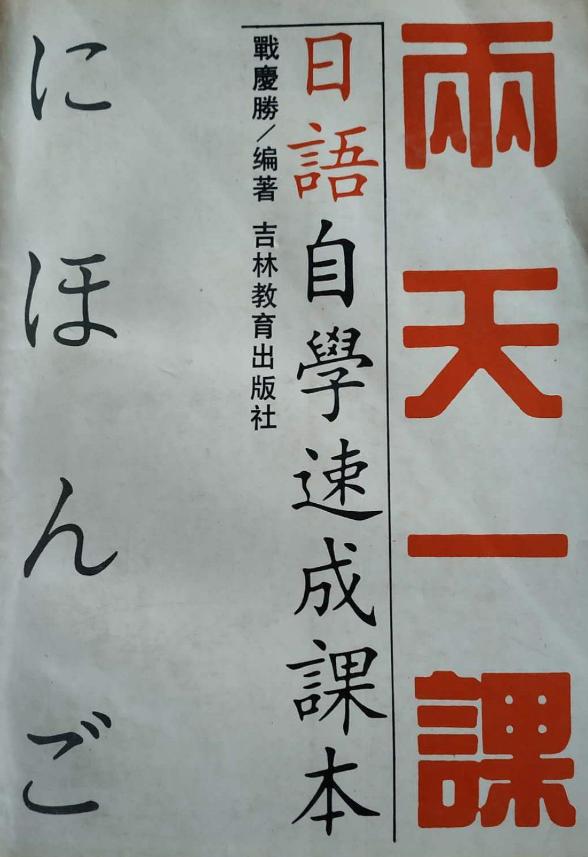 兩天一課
日語自學速成課本
戰慶勝／编著 吉林教育出版社
にほんご